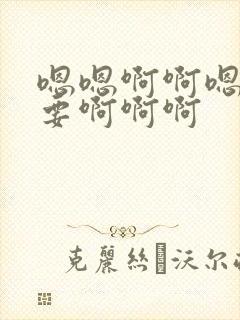 嗯嗯啊啊嗯
要啊啊啊
克麗絲沃尔